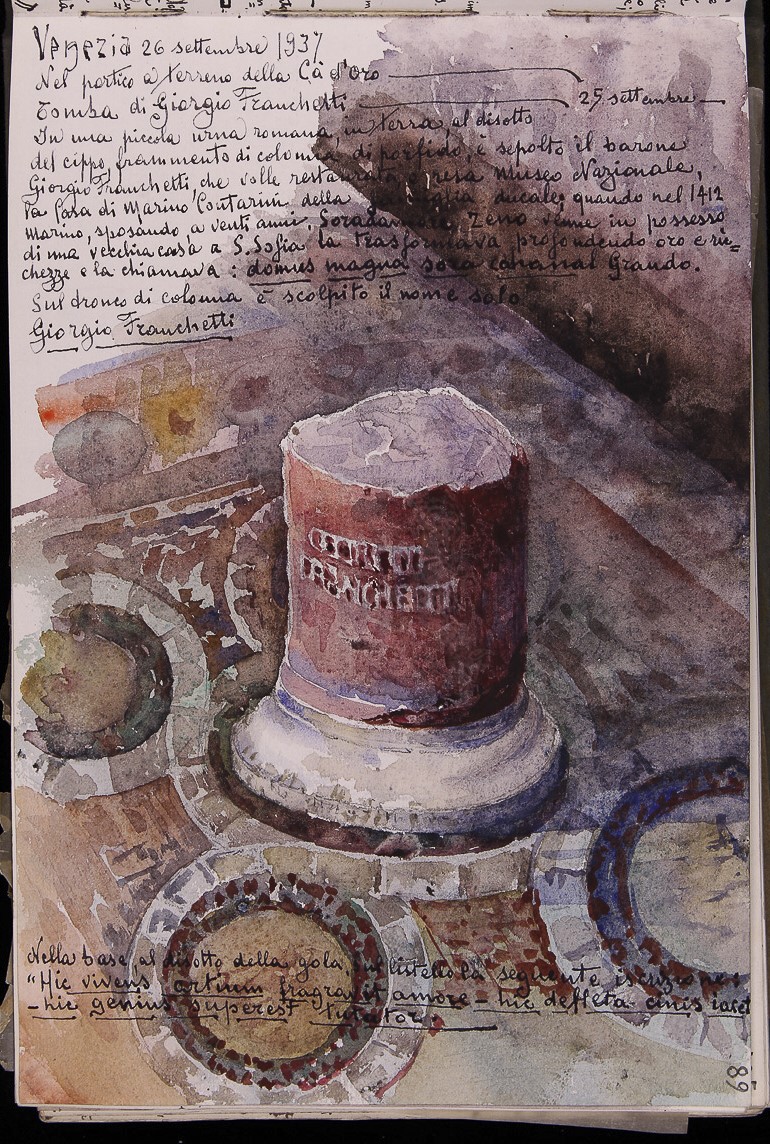 Venezia 26 settembre 1937
Nel portico a terreno della Cà d'Oro
Tomba di Giorgio Franchetti 25 settembre
In una piccola urna romana, in terra, al disotto
del cippo, frammento di colonna di porfido, è sepolto il barone
Giorgio Franchetti, che volle restaurata, e resa Museo Nazionale,
la Casa di Marino Contarini della famiglia ducale; quando nel 1412
Marino, sposando, a venti anni, Soradamor Zeno venne in possesso
di una vecchia casa a S. Sofia la trasformava profondendo oro e ric=
chezze e la chiamava: domus magna sora cananal Grando.
Sul tronco di colonna è scolpito il nome solo
Giorgio Franchetti
GIORGIO
FRANCHETTI
Nella base, al disotto della gola, sul listello la seguente iscrizione:
"Hic vivens artium fragravit amore - hic defleta cinis iacet
- hic genius superest tutator.
89